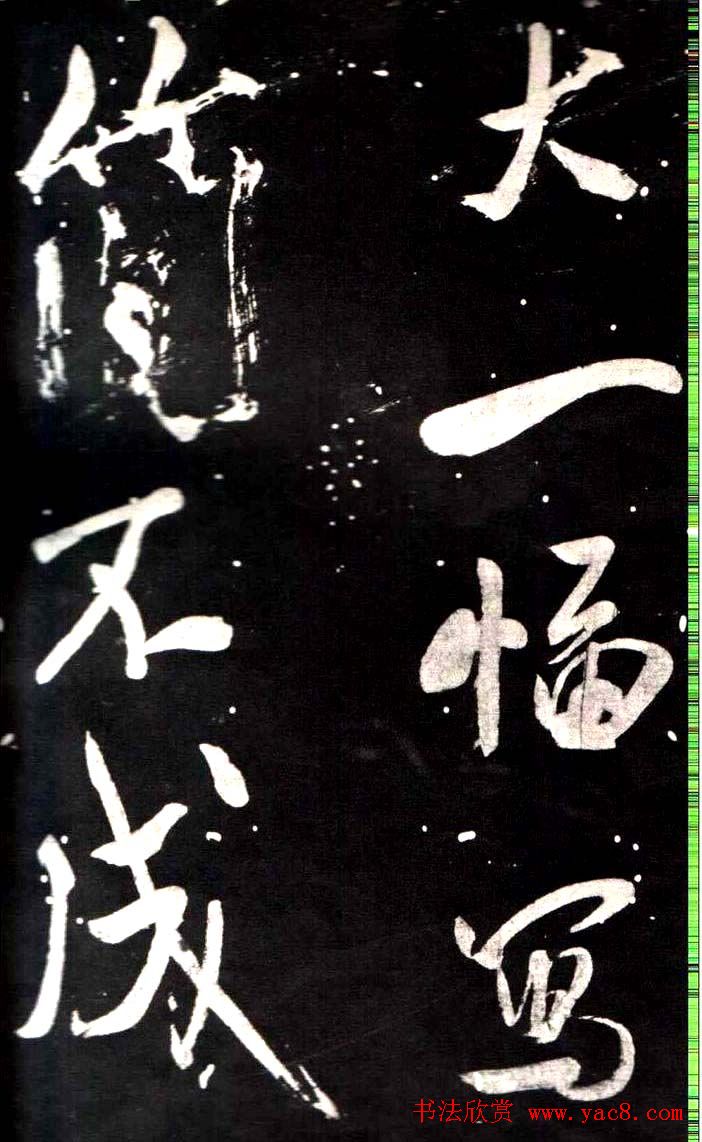 大一幅写
箇不成
书法欣赏 www.yac8.com